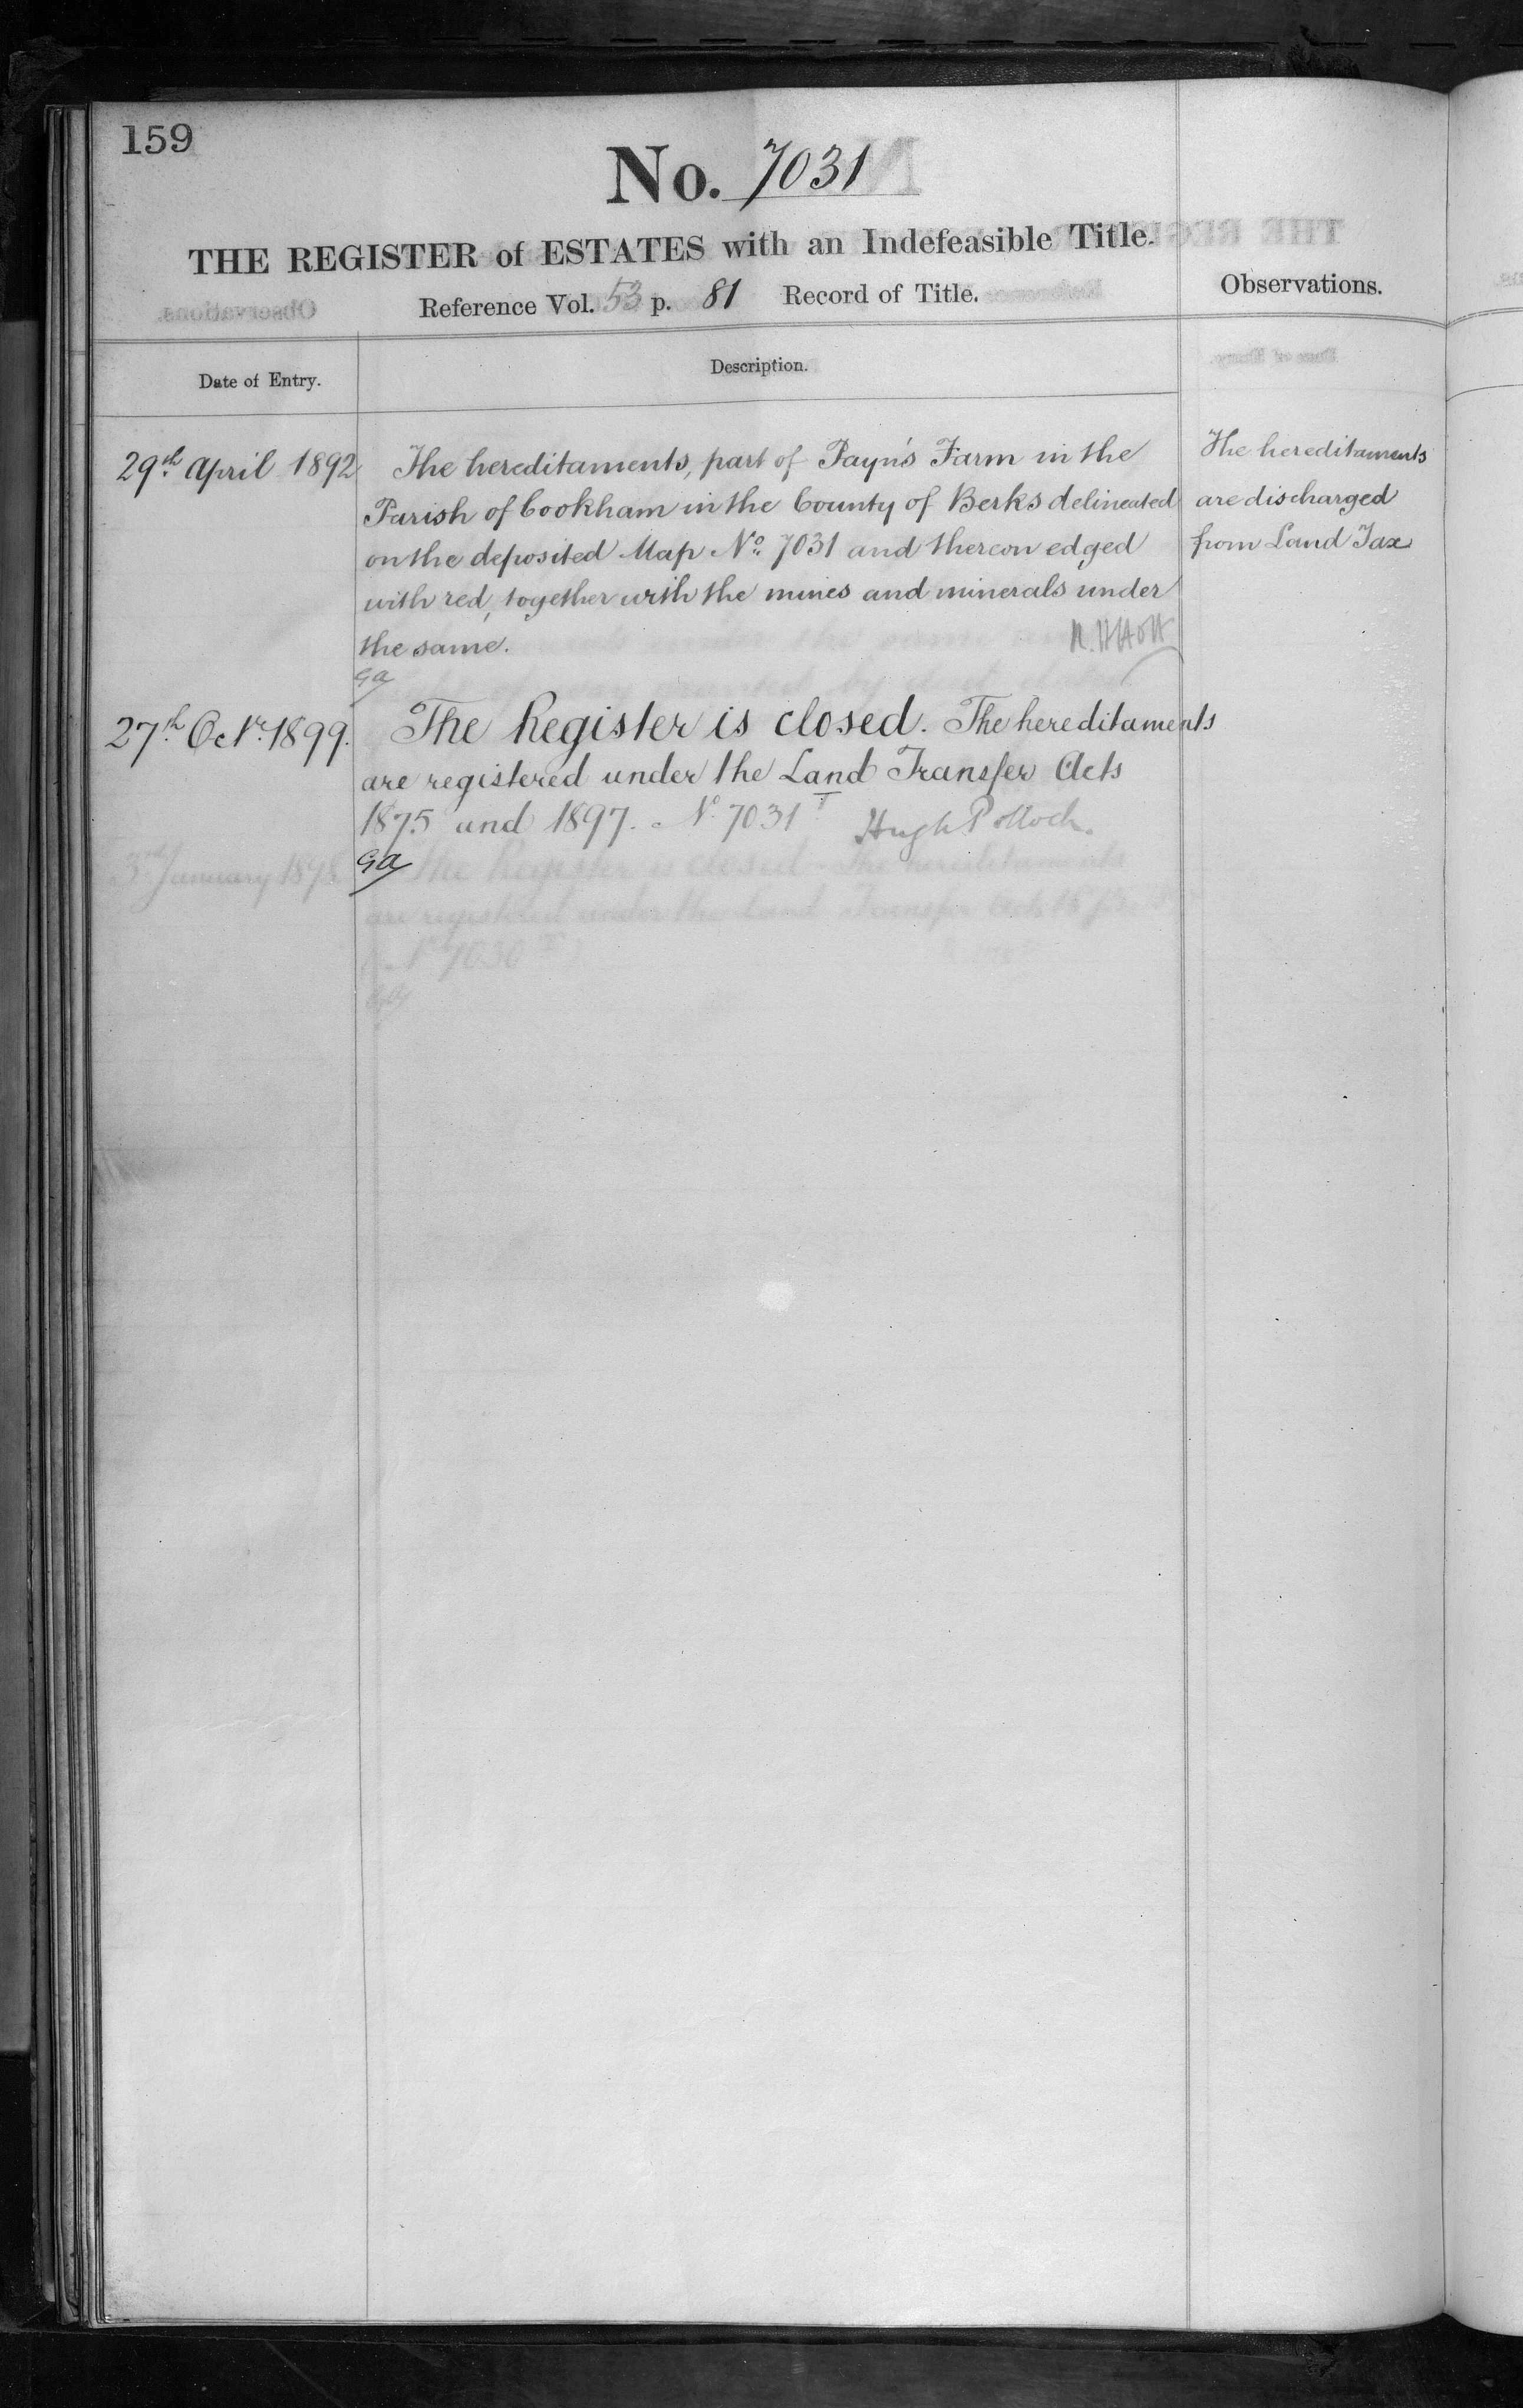 159
No. 7031
THE REGISTER of ESTATES with an Indefeasible Title.
Reference Vol. 53 p. 81 Record of Title.
Observations.
Date of Entry.
Description.
29th April 1892
The hereditaments, part of Payn's Farm in the
Parish of Cookham in the County of Berks delineated
on the deposited Map No. 7031 and thereon edged
with red, together with the mines and minerals under
the same.
GA
The hereditaments
are discharged
from Land Tax
27th Octr. 1899.
The Register is closed. The hereditaments
are registered under the Land Transfer Acts
1875 and 1897. No. 7031 I Hugh Pollock.
GA
3rd January 1898
The Register is closed The hereditaments
are registered under the Land Transfer Act 1875
No 7030
GA